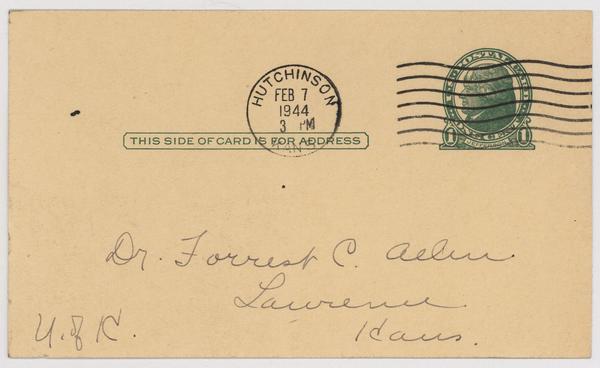 HUTCHINSON
FEB 7
1944
3 PM
KANS.
THIS SIDE OF CARD IS FOR ADDRESS
1 1
JEFFERSON
Dr. Forrest C. Allen.
Lawrence
U. of K. Kans.